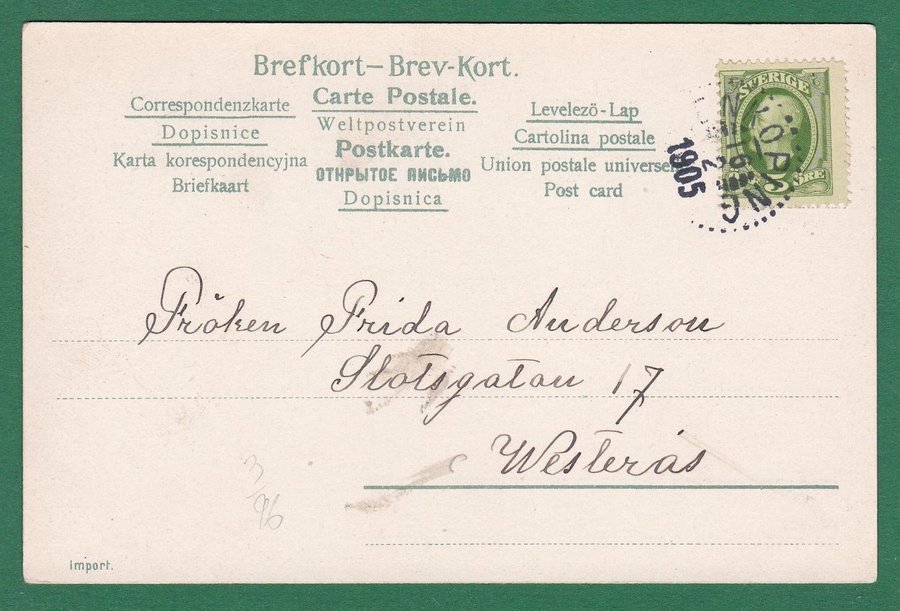 Brefkort—Brev-Kort.
Correspondenzkarte
Dopisnice
Karta korespondencyjna
Briefkaart
Carte Postale.
Weltpostverein
Postkarte.
ОТКРЫТОЕ ПИСЬМО
Dopisnica
Levelezö-Lap
Cartolina postale
Union postale universe
Post card
SVERIGE
ÖRE
KÖPING
1905
Fröken Frida Anderson
Slotsgatan 17
Westerås
3/96
Import.